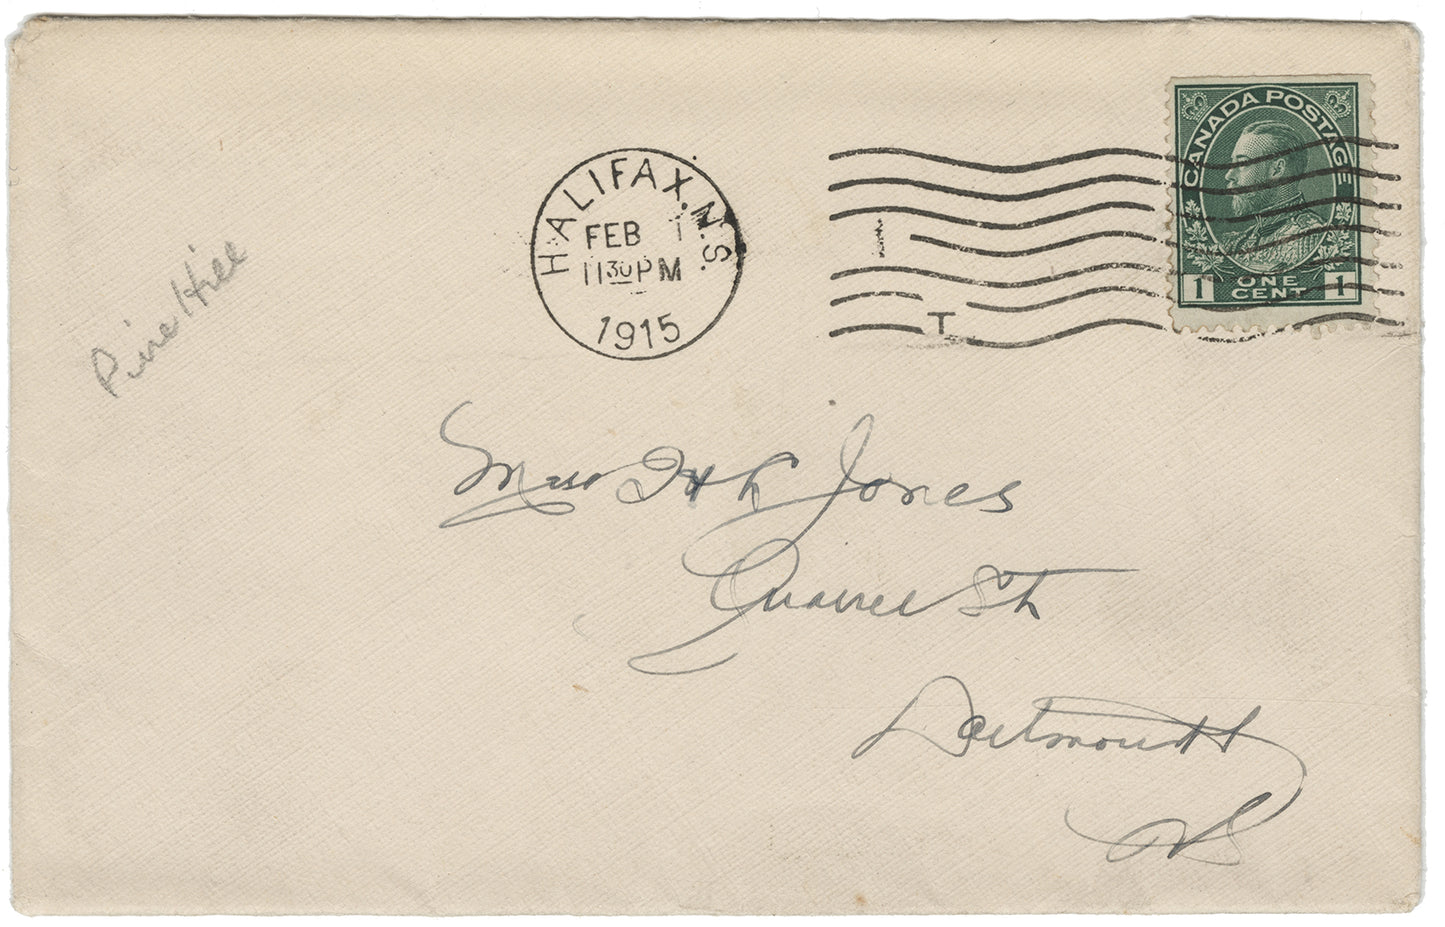 CANADA POSTAGE
1 ONE CENT 1
HALIFAX, N.S.
FEB 1
11 30 PM
1915
T
Pine Hill
Miss Jones
St
Dartmouth
NS